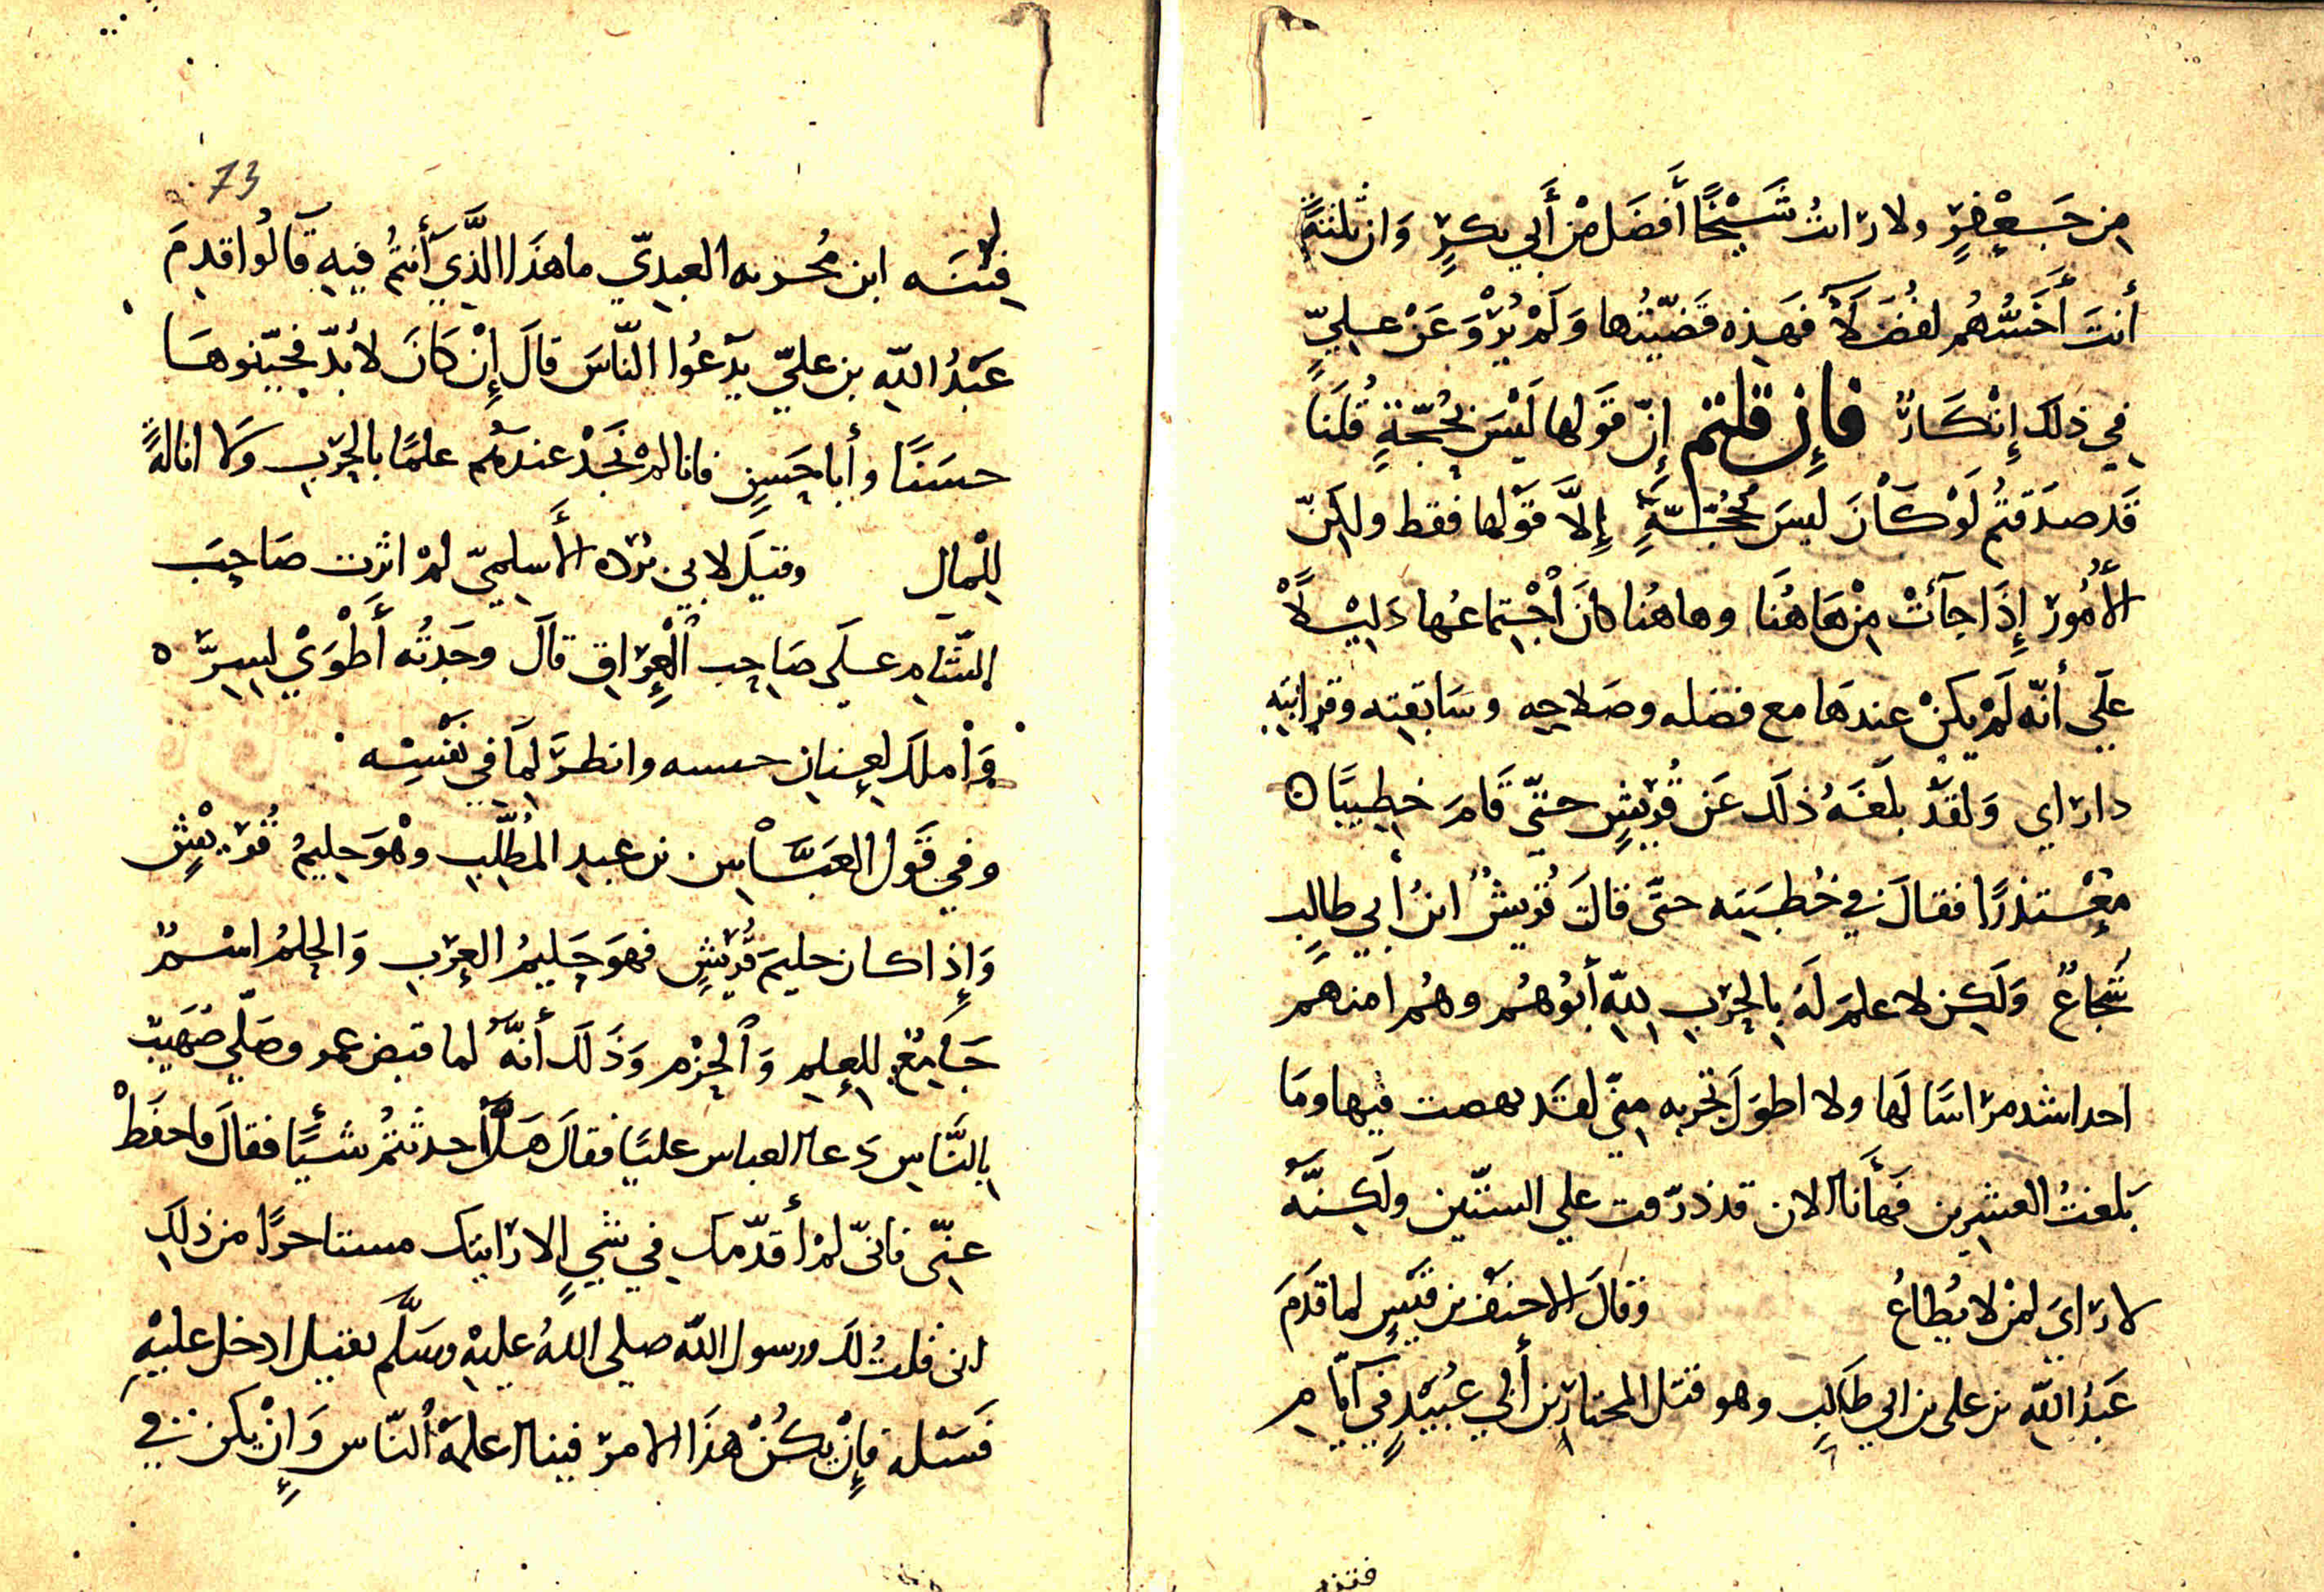 من جَعْفرٍ ولا راتُ شَيْخًا أَفضَل مْن أَبي بكرٍ وَان ثلثةً
أنتَ أَخَسُّهُم لفُضَلَآ فهَذِه قضيّتُها وَلَمْ يُرْوَ عَنْ عليٍّ
في ذلكَ إِنْكَارٌ فإن قلتم إنّ قَولها لَيْسَ بحُجّةٍ قُلنَا
قَد صدَقتُم لَوْ كَانَ ليسَ حجَّةٍ إِلَّا قَوْلها فقط ولكِنّ
الأُمُورَ إِذَا جَآئَتْ مِنْ هَاهُنَا وهاهُنا كانَ اْجْتِماعُها دَلِيْلًا
علَي أنّه لَمْ يكنْ عندهَا مع فضله وصَلاحِه وسَابقتِه وقرابَتِهِ
دا رَاي وَلقدْ بلَغَهُ ذلكَ عَن قُرَيْشٍ حتيّ قَامَ خطِيبًا
مُعْتذرًا فقالَ في خُطبَتِه حتّى قالَت قُريشٌ ابنُ أبي طالبٍ
شُجاعٌ وَلَكِن لا علمَ لَهُ بالحَرْبِ للهِ أبُوهُم وهُم امنهم
احد اشد مرَاسًا لَها ولا اطوَلَ تجربه مِنّي لقَد نهضت فيها ومَا
بَلغتُ العشرِين فَهأنا الان قد ذرّفت علي الستّين ولَكِنَّه
لا رَايَ لمنْ لا يُطاعُ وَقالَ الاحنَفُ بن قَيْسٍ لما قَدَمَ
عَبدُ اللهِ بن على بن ابي طَالبٍ وهو قتَل المختَارَ بن أبي عُبَيْدٍ في أيّامِ
فتنه
73
فِتْنَتِه ابن مُخربه العبدِيّ ما هذَا الذَّي أَنتُم فيهِ قالُوا قدِمَ
عَبْدُ اللهِ بن عليٍّ يدْعُوا النّاسَ قالَ إِنْ كَانَ لا بُدّ فجيّبوهَا
حسَنًا وأبا حَسَنٍ فانا لمْ نَجَدْ عندَهُم علمًا بالحَرْبِ وَلا ايالةً
للْمال وقيَلَ لابي بُرْده الأَسلميّ لمْ اثَرت صَاحِبَ
الشّامِ عَلَى صَاحِب الْعِرَاق قالَ وجَدتُه أَطْوَيْ لسِرَّه
وَاملكَ لعِنانِ حسسه وانظرَ لِمَا في نَفْسِه
وفي قَول العبَّاس بن عبدِ المُطّلبِ وهْوَ حَلِيمُ قُرَيْشٍ
وَإِذا كان حليمَ قُرَيْشٍ فهوَ حَلِيمُ العرَبِ وَالحِلمُ اسْمٌ
جَامِعٌ للعِلمِ وَالحَزْم وَذَلكَ أَنَّه لما قبض عمر وصَلّي صُهَيب
بالنَّاسِ دَعا العباس عليًا فقالَ هَل أحدثتُمْ شَيْئًا فقالَ ما احفَظْ
عنّى فانّي لمْ أقدّمك في شيٍ الا رَايتك مستاخرًا من ذلك
انى قلتُ لَكَ ورسول الله صلي اللهُ عليهِ وسَلَّم بقتيل ادخل عليْهِ
فَسَلهُ فإنْ يكُنْ هذَا الامر فينا اعلمهُ النّاس وَإنْ يكن في